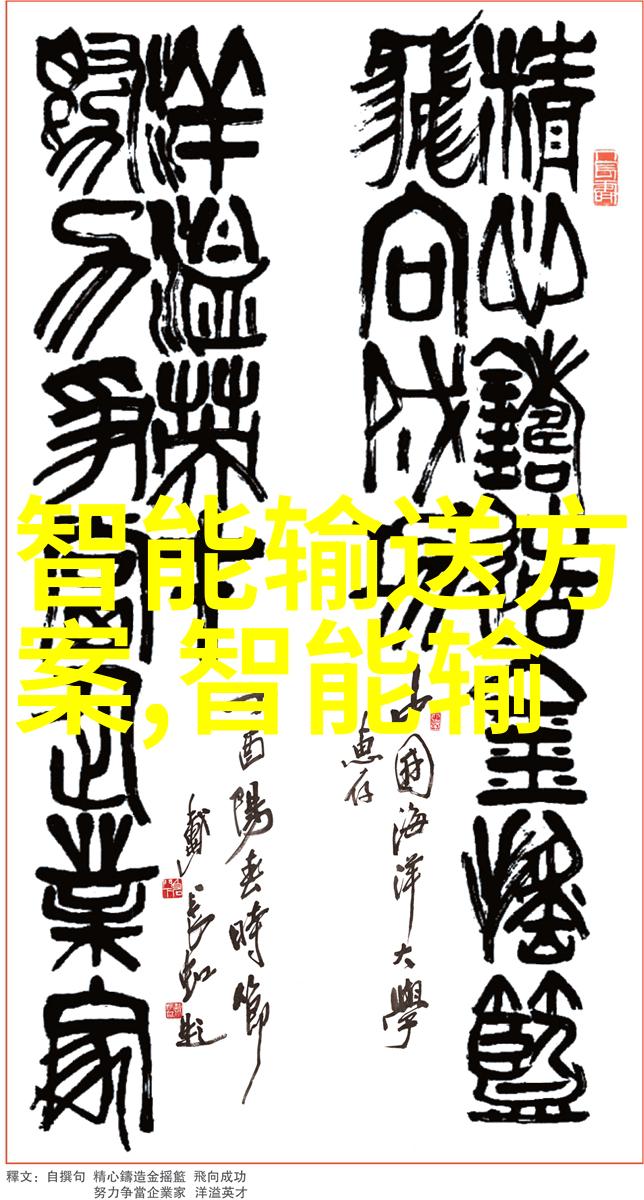 精心鑄造金摇籃
飛向成功
中國海洋大學
惠存
洋溢英才
努力争當企業家
酉陽春時節
戴長虹題
智能输送方
案,智能输
釋文：自撰句 精心鑄造金摇籃 飛向成功
努力争當企業家 洋溢英才